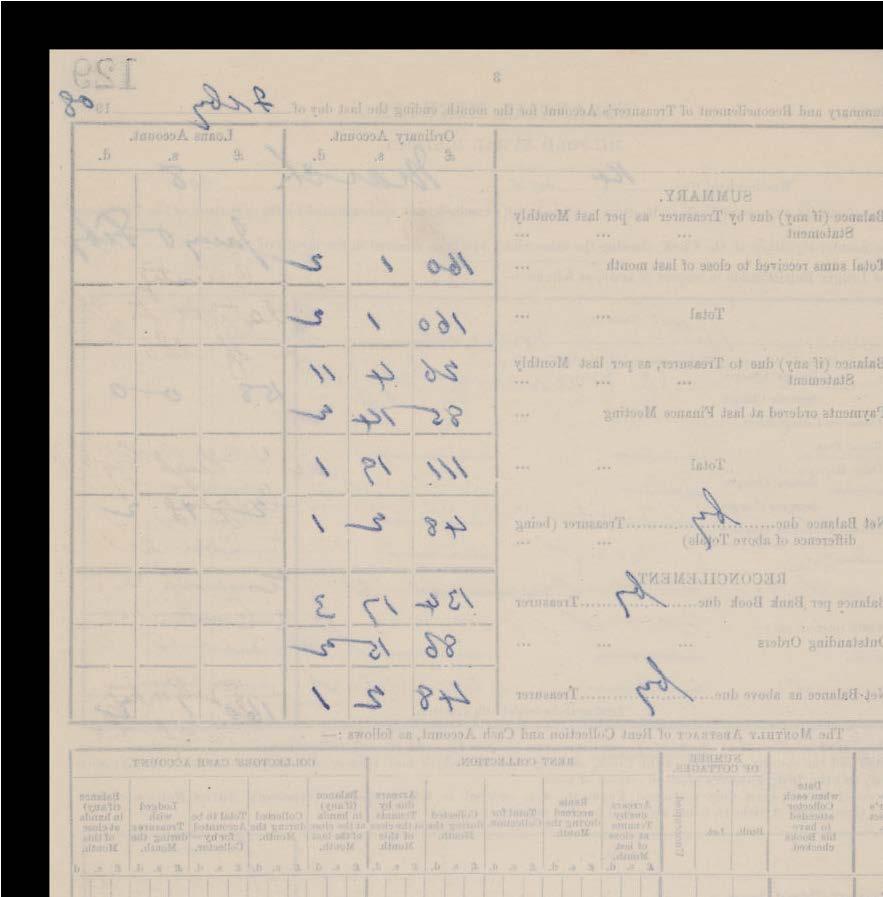 129
3
ummary and Reconcilement of Treasurer's Account for the month ending the last day of Feby 19
Ordinary Account. Loans Account.
£ s. d. £ s. d.
SUMMARY.
Balance (if any) due by Treasurer as per last Monthly
Statement ... ... ...
Total sums received to close of last month ... 160 1 2
Total ... ... 160 1 2
Balance (if any) due to Treasurer, as per last Monthly
Statement ... ... ... 26 4 11
Payments ordered at last Finance Meeting ... 85 14 2
Total ... ... 111 19 1
Net Balance due by Treasurer (being
difference of above Totals) ... ... 48 2 1
RECONCILEMENT
Balance per Bank Book due by Treasurer 134 17 3
Outstanding Orders ... ... ... 86 15 2
Net Balance as above due by Treasurer 48 2 1
The MONTHLY ABSTRACT of Rent Collection and Cash Account, as follows :—
NUMBER OF COTTAGES. RENT COLLECTION. COLLECTORS' CASH ACCOUNT.
Date when each Collector attended to have his Books checked.
Built.
Let.
Unoccupied.
Arrears owed by Tenants at close of last Month.
Rents accrued during the Month.
Total for Collection.
Collected during the Month.
Arrears due by Tenants at the close of this Month.
Balance (if any) in hands at the close of last Month.
Collected during the Month.
Total to be Accounted for by Collector.
Lodged with Treasurer during the Month.
Balance (if any) in hands at close of this Month.
£ s. d. £ s. d. £ s. d. £ s. d. £ s. d. £ s. d. £ s. d. £ s. d. £ s. d. £ s. d.